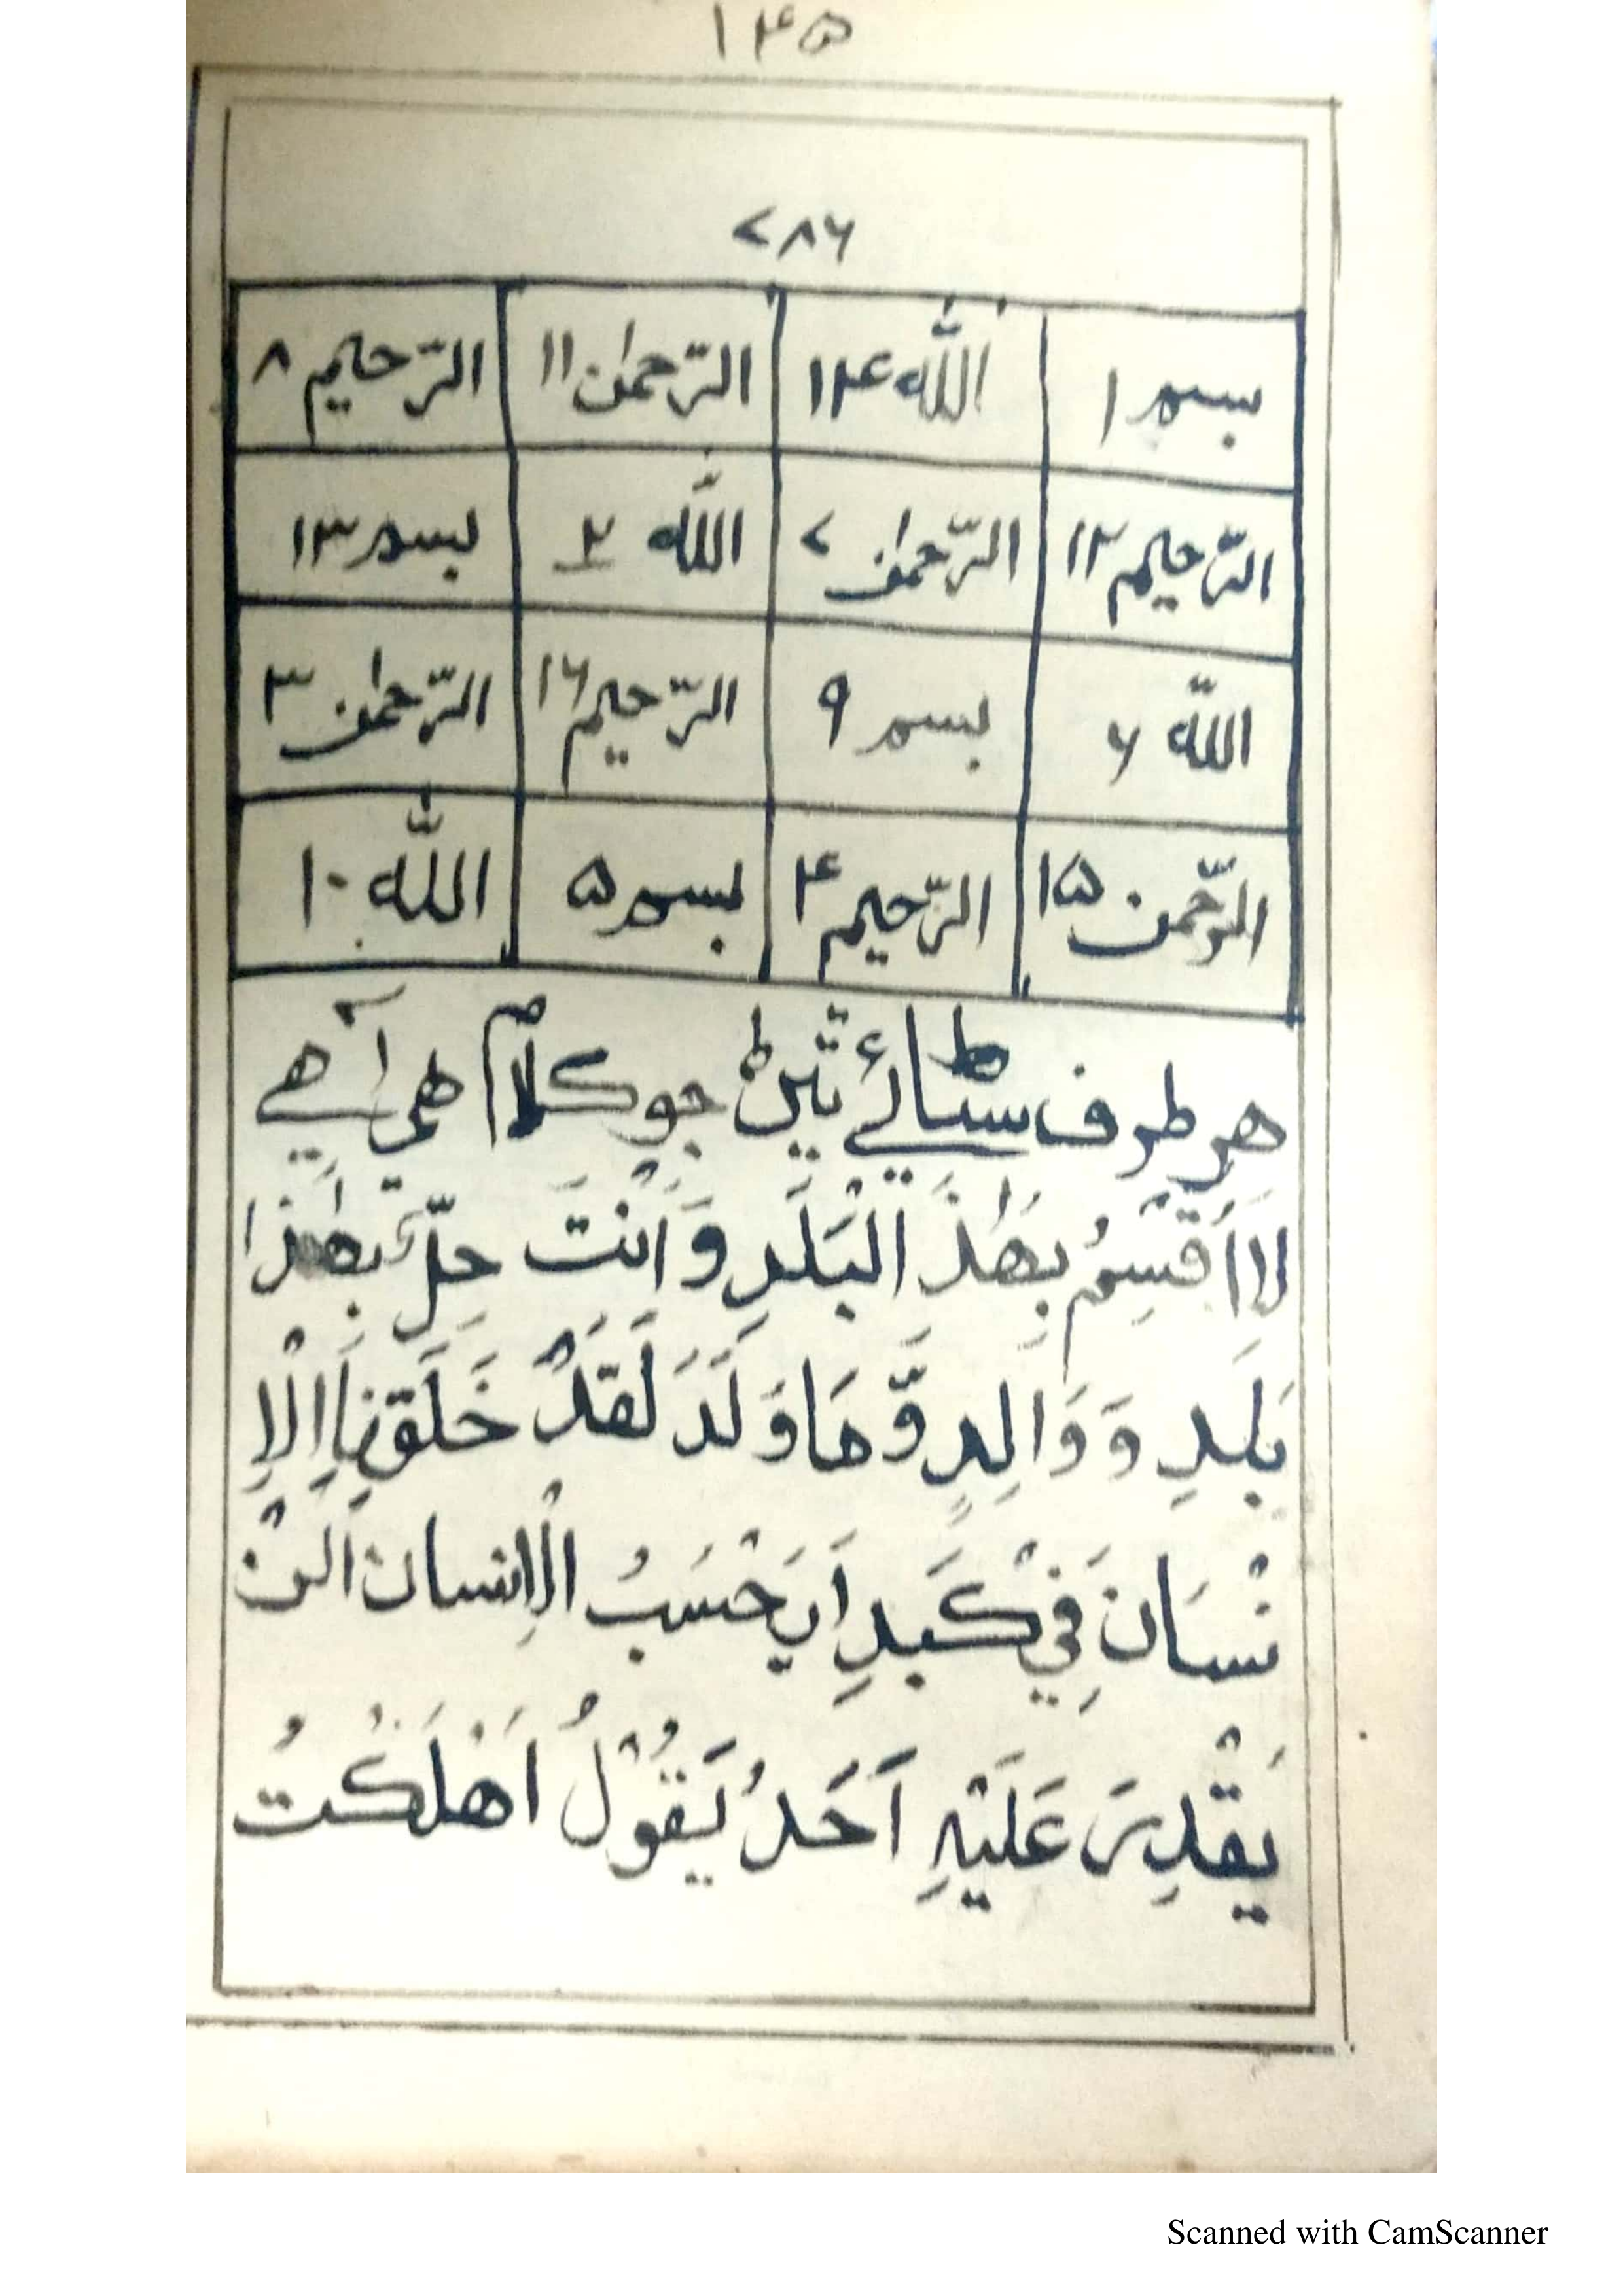 ۱۴۵
۷۸۶
بسم ۱ اللّٰه ۱۴ الرّحمٰن ۱۱ الرّحیم ۸
الرّحیم ۱۲ الرّحمٰن ۷ اللّٰه ۲ بسم ۱۳
اللّٰه ۶ بسم ۹ الرّحیم ۱۶ الرّحمٰن ۳
الرّحمن ۱۵ الرّحیم ۴ بسم ۵ اللّٰه ۱۰
هر طرف جو کلام هی آهے
لَا اَقْسِمُ بِهٰذَ الْبَلَدِ وَ اَنْتَ حِلٌّ بِهٰذَا
بَلَدِ وَ وَالِدٍ وَّ مَا وَلَدَ لَقَدْ خَلَقْنَا الْاِ
نْسَانَ فِيْ كَبَدِ اَيَحْسَبُ الْاِنسان اَلنْ
يَقْدِرَ عَلَيْهِ اَحَدُ يَقُوْلُ اَهْلَكْتُ
Scanned with CamScanner